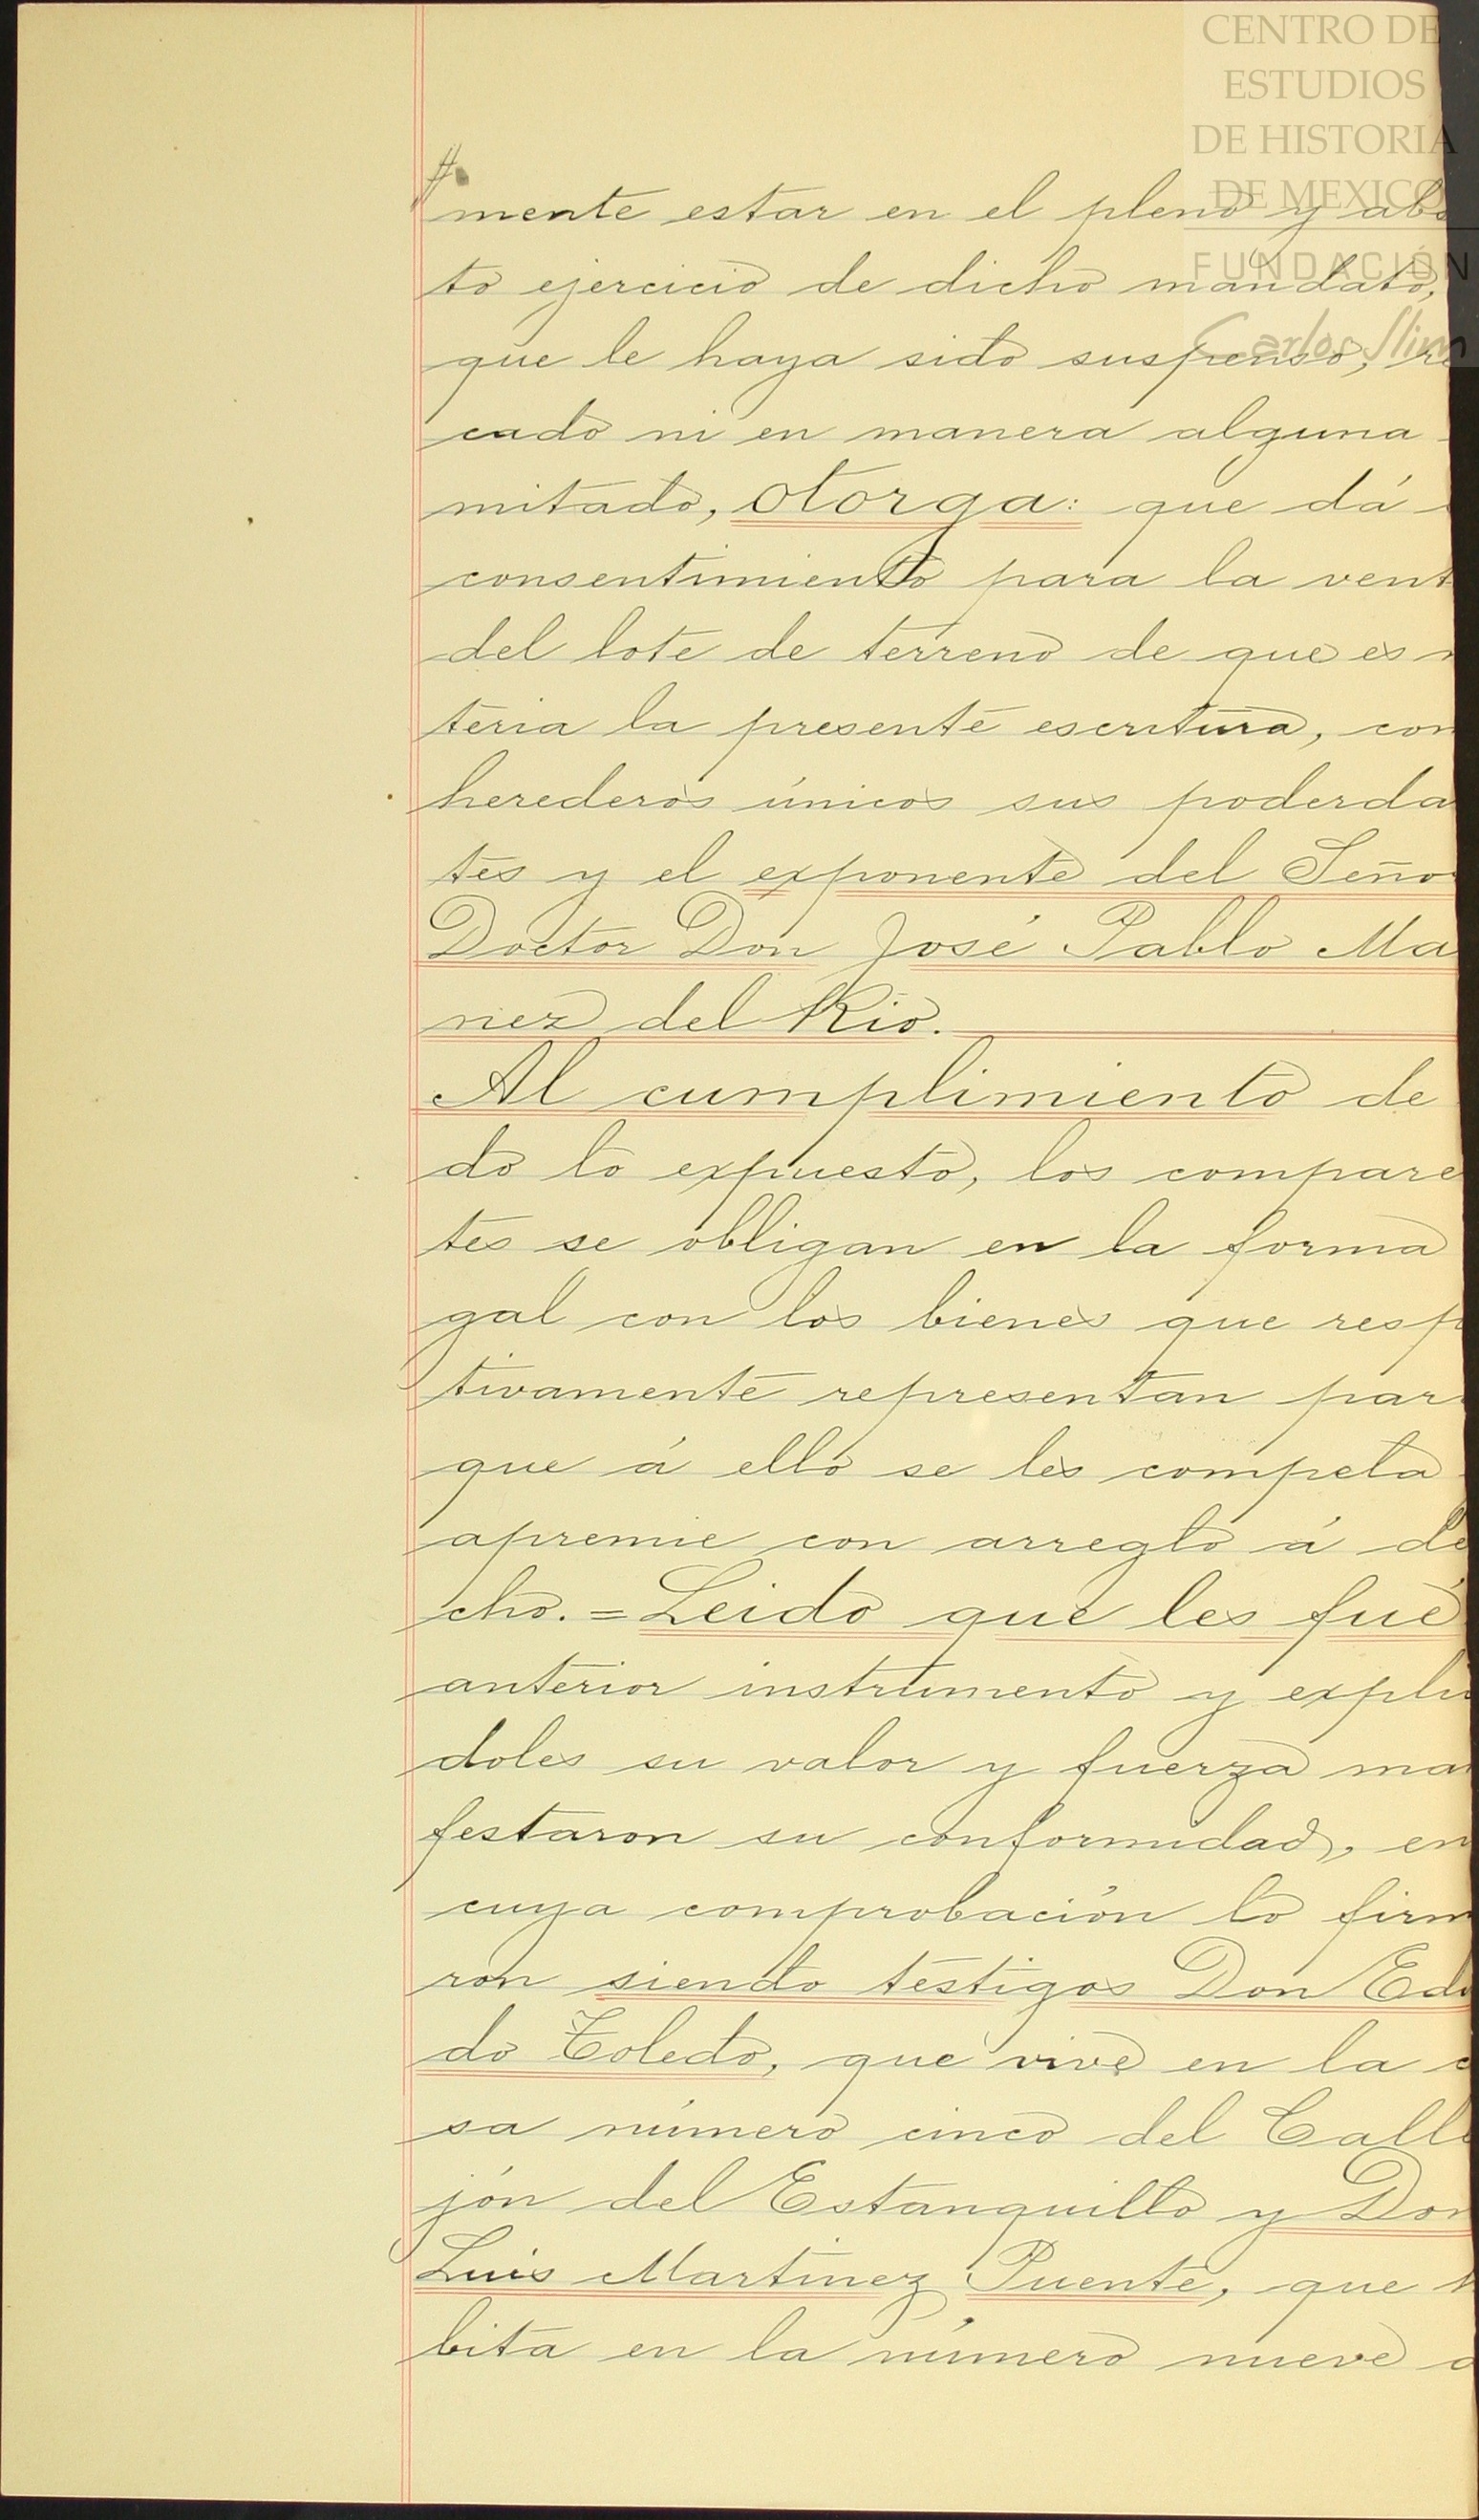 CENTRO DE
ESTUDIOS
DE HISTORIA
DE MEXICO
FUNDACIÓN
Carlos Slim
mente estar en el pleno y abs
to ejercicio de dicho mandato,
que le haya sido suspenso, re
cado ni en manera alguna
mitado, otorga: que dá
consentimiento para la vent
del lote de terreno de que es
teria la presente escritura, com
herederos únicos sus poderda
tes y el exponente del Señor
Doctor Don José Pablo Ma
nez del Rio.
Al cumplimiento de
do lo expuesto, los compare
tes se obligan en la forma
gal con los bienes que resp
tivamente representan par
que á ello se les compela
apremie con arreglo á de
cho. = Leido que les fué
anterior instrumento y expli
doles su valor y fuerza man
festaron su conformidad, en
cuya comprobación lo firm
ron siendo testigos Don Edu
do Toledo, que vive en la c
sa número cinco del Calle
jón del Estanquillo y Don
Luis Martinez Puente, que h
bita en la número nueve d